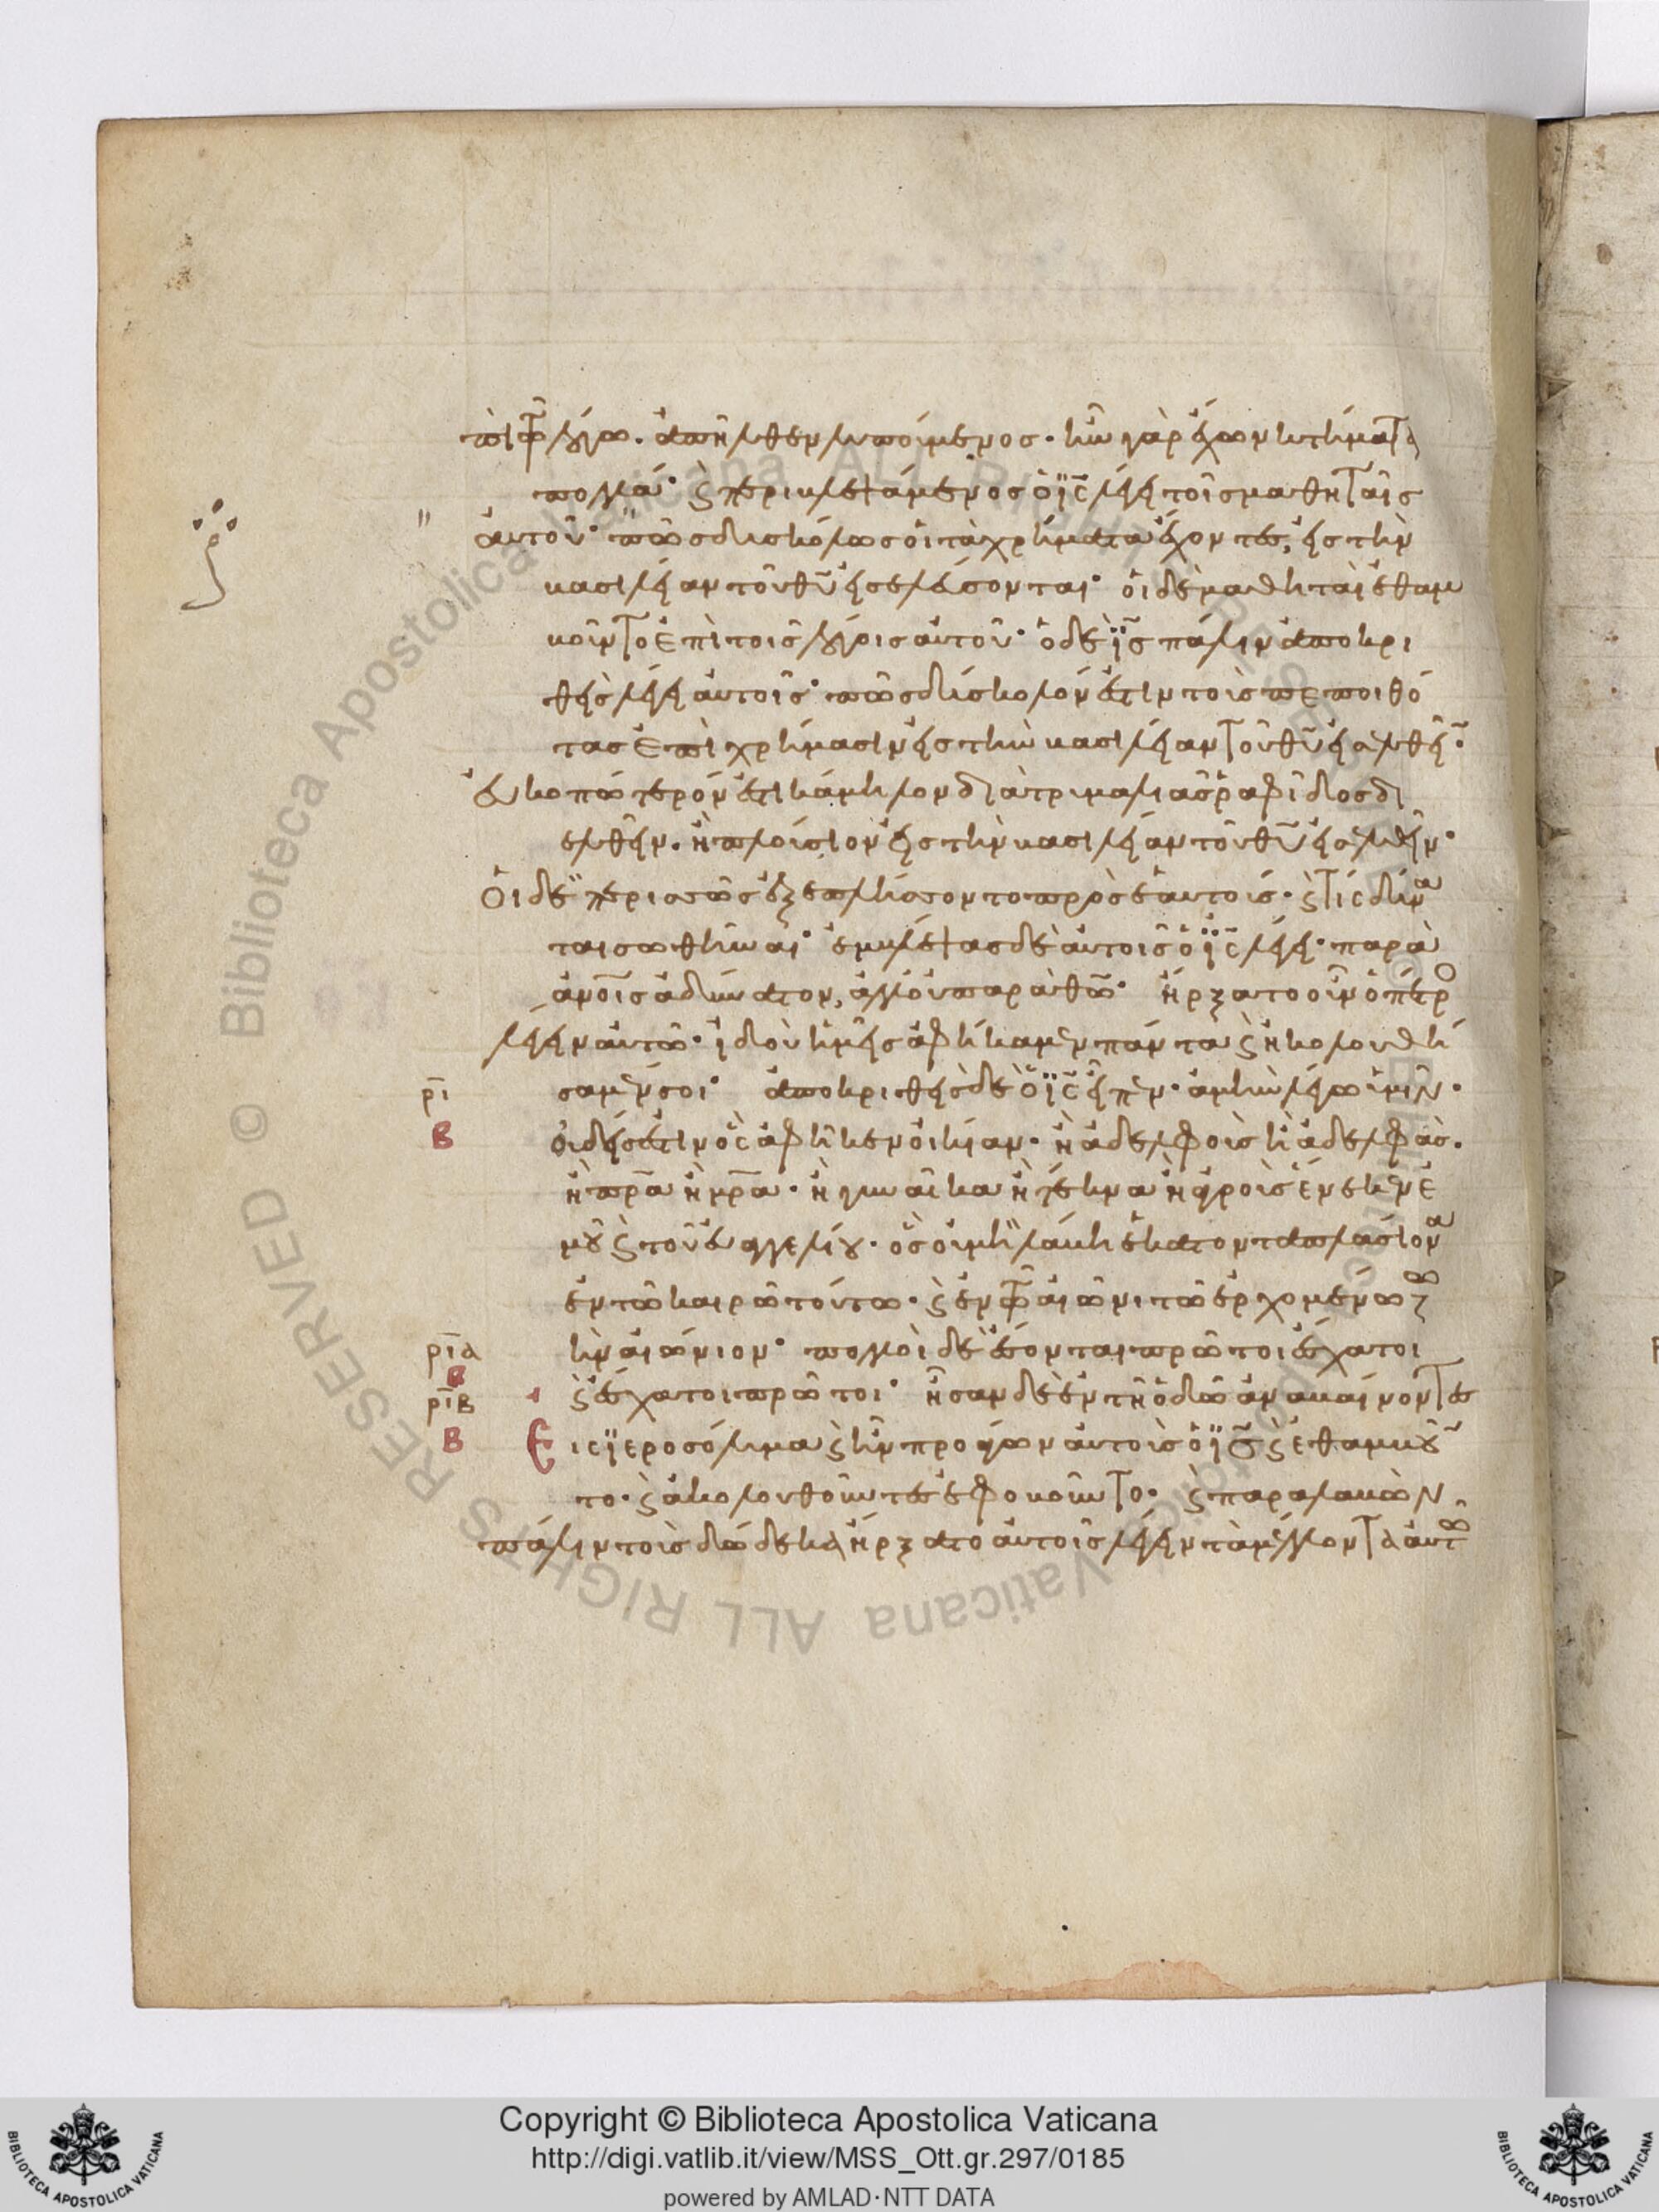 ἐπὶ τῷ λόγω. ἀπῆλθεν λυπούμενος· ἦν γὰρ ἔχων κτήματα
πολλά· ϗ περιβλεψάμενος ὁ ϊ̅ς̅ λέγει τοῖς μαθηταῖς
αὐτοῦ· πῶς δυσκόλως οἱ τὰ χρήματα ἔχοντες, εἰς τὴν
βασιλείαν τοῦ θ̅υ̅ εἰσελεύσονται· οἱ δὲ μαθηταὶ ἐθαμ
βοῦντο ἐπὶ τοῖς λόγοις αὐτοῦ· ὁ δὲ ϊ̅ς̅ πάλιν ἀποκρι
θεὶς λέγει αὐτοῖς· πῶς δύσκολόν ἐστιν τοὺς πεποιθό
τας ἐπὶ χρήμασιν εἰς τὴν βασιλείαν τοῦ θ̅υ̅ εἰσελθεῖν·
εὐκοπώτερόν ἐστι κάμηλον διὰ τρυμαλιᾶς ῥαφίδος δι
ελθεῖν. ἢ πλούσιον εἰς τὴν βασιλείαν τοῦ θ̅υ̅ εἰσελθεῖν·
Οἱ δὲ περισσῶς ἐξεπλήσσοντο πρὸς ἑαυτούς· ϗ τίς δύνα
ται σωθῆναι· ἐμβλέψας δὲ αὐτοῖς ὁ ϊ̅ς̅ λέγει· παρὰ
ἀν̅οι̅ς ἀδύνατον, ἀλλ' οὐ παρὰ θ̅ω̅· ἤρξατο οὖν ὁ πέτρο
λέγειν αὐτῶ· ἰδοὺ ἡμεῖς ἀφήκαμεν πάντα ϗ ἠκολουθή
ρ̅ι̅ σαμέν σοι· ἀποκριθεὶς δὲ ὁ ϊ̅ς̅ εἶπεν· ἀμὴν λέγω ὑμῖν·
β οὐδείς ἐστιν ὃς ἀφῆκεν οἰκίαν· ἢ ἀδελφοὺς ἢ ἀδελφάς.
ἢ π̅ρ̅α̅ ἢ μ̅ρ̅α̅· ἢ γυναῖκα ἢ τέκνα ἢ ἀγροὺς ἕνεκεν ἐ
μοῦ ϗ τοῦ εὐαγγελίου· ὃς οὐ μὴ λάβη ἑκατονταπλασίονα
ἐν τῶ καιρῶ τούτω· ϗ ἐν τῷ αἰῶνι τῶ ἐρχομένω ζω
ρ̅ι̅α̅ ὴν αἰώνιον· πολλοὶ δὲ ἔσονται πρῶτοι ἔσχατοι
β
ρ̅ι̅β̅ ϗ ἔσχατοι πρῶτοι· ἦσαν δὲ ἐν τῆ ὁδῶ ἀναβαίνοντες
β Εἰς ϊεροσόλυμα ϗ ἦν προάγων αὐτοὺς ὁ ϊ̅ς̅ ϗ ἐθαμβοῦν
το· ϗ ἀκολουθοῦντες ἐφοβοῦντο· ϗ παραλαβὼν
πάλιν τοὺς δώδεκα ἤρξατο αὐτοῖς λέγειν τὰ μέλλοντα αὐτῶ
Copyright © Biblioteca Apostolica Vaticana
http://digi.vatlib.it/view/MSS_Ott.gr.297/0185
powered by AMLAD·NTT DATA
BIBLIOTECA APOSTOLICA VATICANA
BIBLIOTECA APOSTOLICA VATICANA
© Biblioteca Apostolica Vaticana ALL RIGHTS RESERVED
© Biblioteca Apostolica Vaticana ALL RIGHTS RESERVED